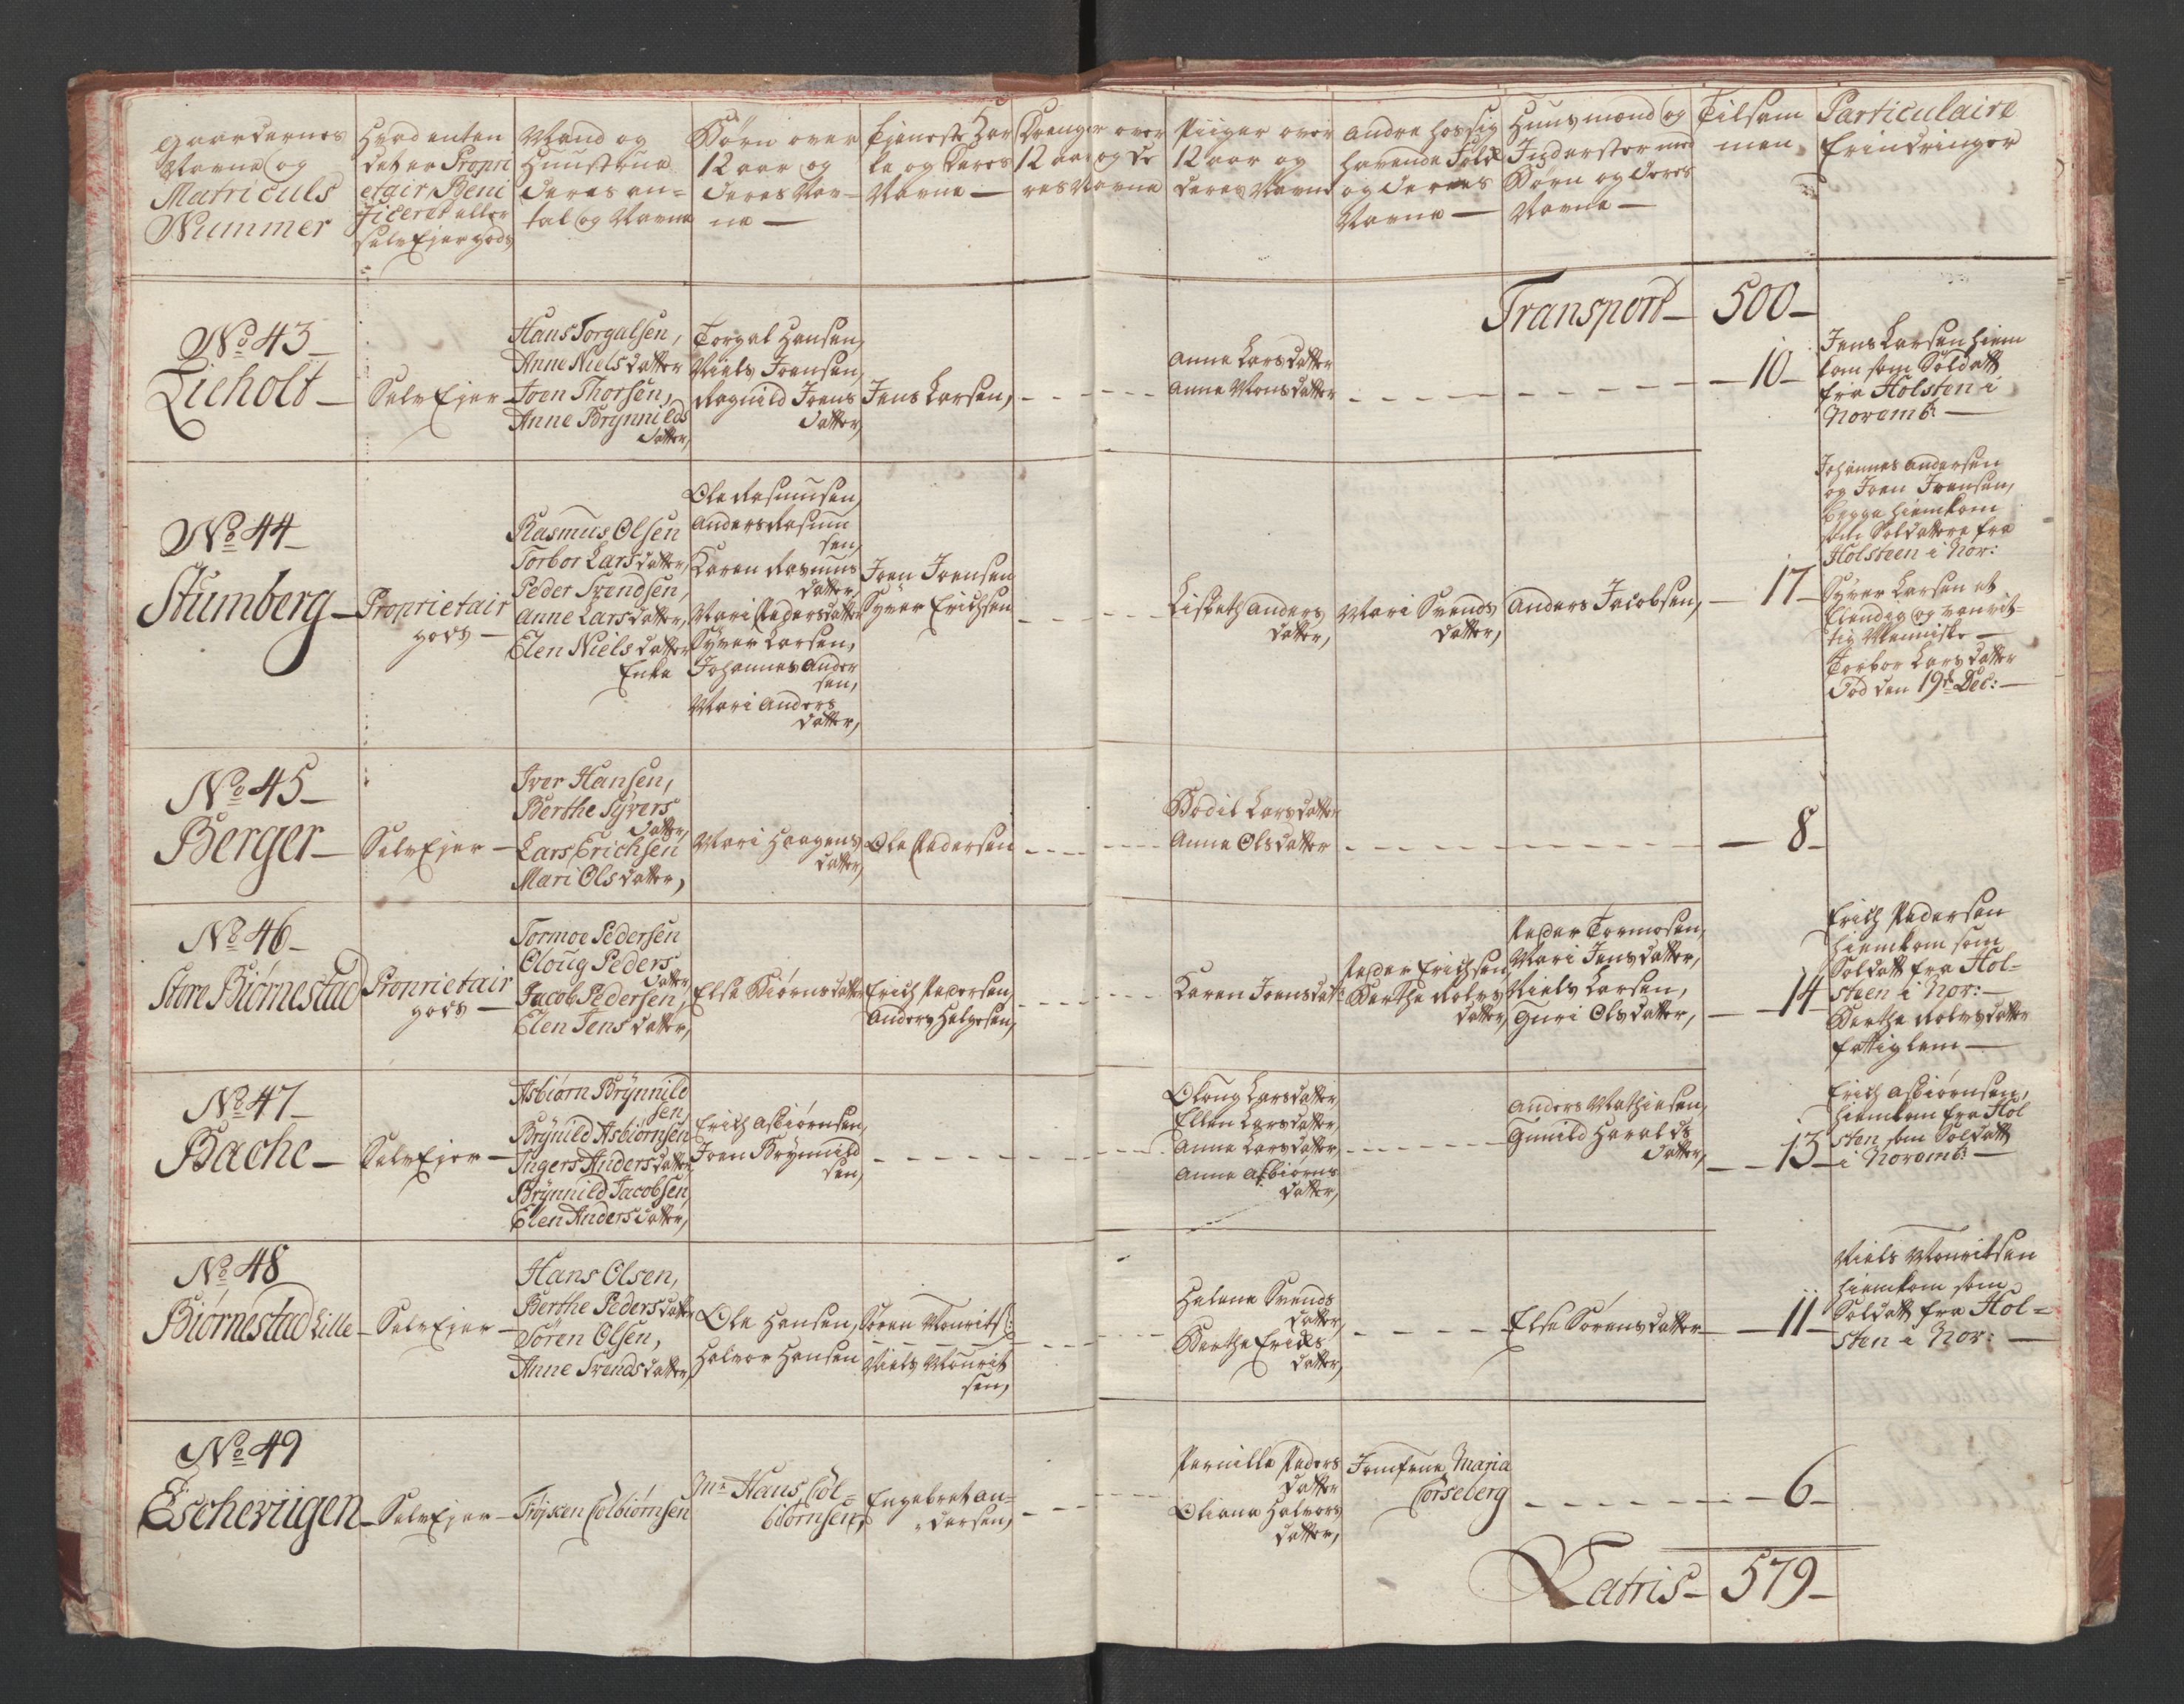 Gaardernes
Navne og
Matriculs
Nummer
Hvad enten
det er Propri
etair, Beni
ficeret eller
selvEjer gods
Mand og
Huustrue
deres an-
tal og Navne
Børn over
12 aar og
deres Nav-
ne —
Tieneste Kar
le og deres
Navne —
Drenger over
12 aar og de
res Navne
Piiger over
12 aar og
deres Navne
Andre hos sig
havende Folk
og deres
Navne —
Huusmænd og
Inderster med
Børn og deres
Navne —
Tilsam
men
Particulaire
Erindringer
Transport — 500 —
No 43 —
Lieholt —
SelvEjer —
Hans Torgalsen,
Anne Nielsdatter
Joen Thorsen,
Anne Brynnilds
datter,
Torgal Hansen,
Niels Joensen,
Ragnild Joens
datter,
Jens Larsen,
Anne Larsdatter
Anne Monsdatter
— 10 —
Jens Larsen hiem
kom som Soldatt
fra Holsten i
Novemb: —
No 44 —
Stumberg —
Proprietair
gods —
Rasmus Olsen
Torbor Larsdatter,
Peder Svendsen,
Anne Larsdatter,
Elen Nielsdatter
Enke
Ole Rasmusen,
Anders Rasmu
sen,
Karen Rasmus
datter,
Mari Pedersdatter
Syver Larsen,
Johannes Ander
sen,
Mari Anders
datter,
Joen Joensen
Syver Erichsen
Lisbeth Anders
datter,
Mari Svends
datter,
Anders Jacobsen,
— 17 —
Johannes Andersen
og Joen Joensen,
begge hiemkom
som Soldattere fra
Holsteen i Nov:
Syver Larsen et
Elendig og vanvit-
tig Menniske —
Torbor Larsdatter
Død den 19de Dec: —
No 45 —
Berger —
SelvEjer —
Iver Hansen,
Berthe Syvers
datter,
Lars Erichsen
Mari Olsdatter,
Mari Haagens
datter,
Ole Pedersen
Bodil Larsdatter
Anne Olsdatter
— 8 —
No 46 —
Store Biørnestad
Proprietair
gods —
Tormoe Pedersen
Oloug Peders
datter,
Jacob Pedersen,
Elen Jensdatter,
Else Biørnsdatter
Erich Pedersen,
Anders Helgesen,
Karen Joensdat:
Peder Erichsen,
Berthe Rolvs
datter,
Peder Tormosen,
Mari Jensdatter,
Niels Larsen,
Guri Olsdatter,
— 14 —
Erich Pedersen
hiemkom som
Soldatt fra Hol-
steen i Nov: —
Berthe Rolvsdatter
fattiglem —
No 47 —
Bache —
SelvEjer —
Asbiørn Brynnild
sen,
Brynild Asbiørnsen
Ingers Andersdatter
Brynnild Jacobsen
Elen Andersdatter,
Erich Asbiørnsen,
Joen Brynnild
sen,
Oloug Larsdatter,
Ellen Larsdatter,
Anne Larsdatter,
Anne Asbiørns
datter,
Anders Mathiesen,
Gunild Haralds
datter,
— 13 —
Erich Asbiørnsen,
hiemkom fra Hol
sten som Soldatt
i Novemb: —
No 48
Biørnestad Lille —
SelvEjer —
Hans Olsen,
Berthe Pedersdatter
Søren Olsen,
Anne Svendsdatter,
Ole Hansen,
Halvor Hansen
Søren Mourits:
Niels Mourit
sen,
Helene Svends
datter,
Berthe Erichs
datter,
Else Sørensdatter
— 11 —
Niels Mouritsen
hiemkom som
Soldatt fra Hol-
sten i Nov: —
No 49
Eschevigen —
SelvEjer —
Frøjken Colbiørnsen
Mr Hans Col-
biørnsen,
Engebret An-
dersen,
Pernille Peders
datter
Oliana Halvors
datter,
Jomfrue Maria
Corseberg
— 6 —
Latris — 579 —